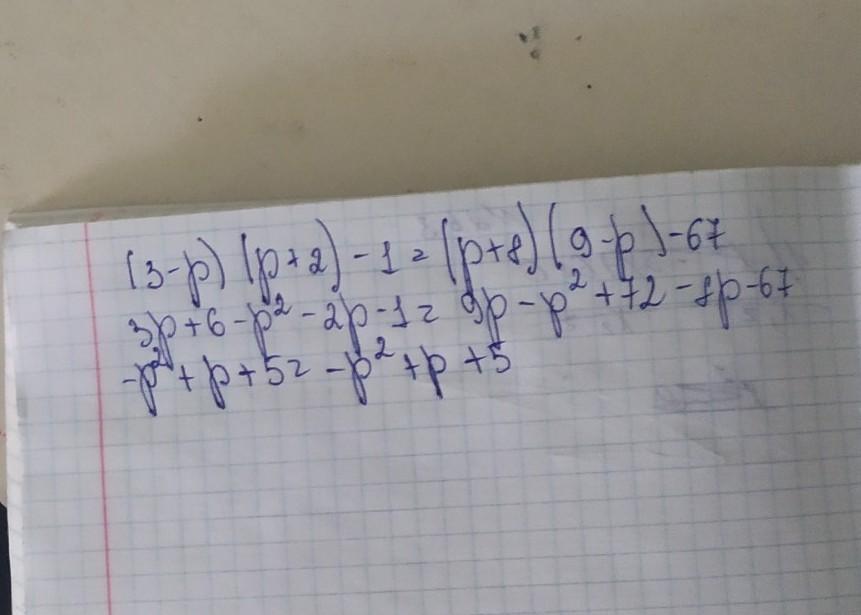 (3-p)(p+2)-1=(p+8)(9-p)-67
3p+6-p²-2p-1=9p-p²+72-8p-67
-p²+p+5=-p²+p+5